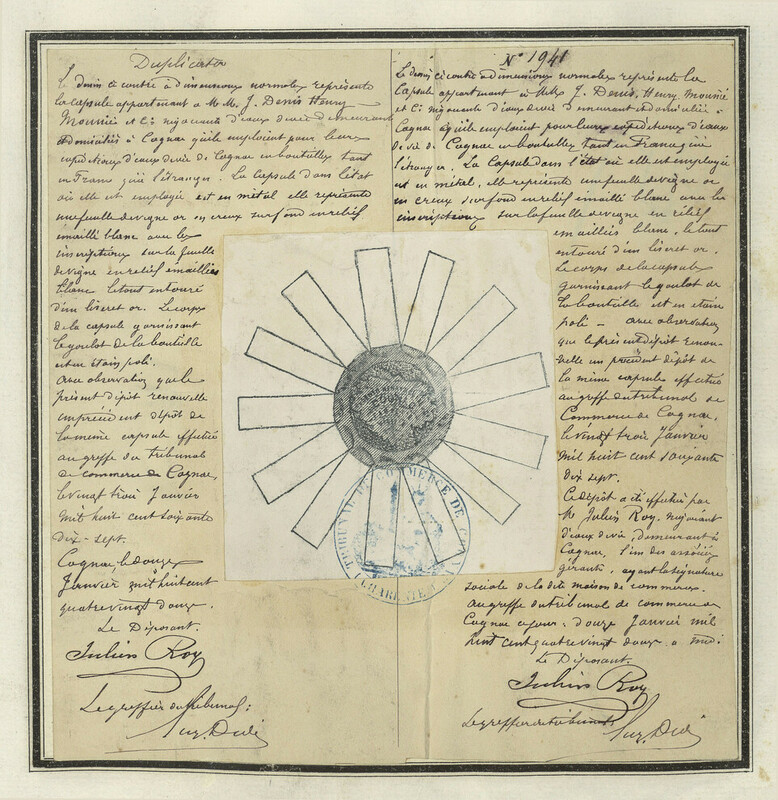 Duplicata
Le dessin ci contre à dimensions normales représente
la capsule appartenant à M.M. J. Denis Henry
Mounié et Cie négociants d'eaux de vie demeurant
et domiciliés à Cognac qu'ils emploient pour leurs
expéditions d'eaux de vie de Cognac en bouteilles tant
en France qu'à l'étranger. La Capsule dans l'état
où elle est employée est en métal elle représente
une feuille de vigne or en creux sur fond en relief
émaillé blanc avec les
inscriptions sur la feuille
de vigne en relief émaillées
blanc le tout entouré
d'un liseret or. Le corps
de la capsule garnissant
le goulot de la bouteille
est en étain poli.
Avec observation que le
présent dépôt renouvelle
un précédent dépôt de
la même capsule effectué
au greffe du tribunal
de commerce de Cognac,
le vingt trois Janvier
mil huit cent soixante
dix-sept.
Cognac, le douze
Janvier mil huit cent
quatre vingt douze.
Le Déposant.
Julien Roy
Le greffier du tribunal:
N° 1941
Le dessin ci contre à dimensions normales représente la
Capsule appartenant à M.M. J. Denis, Henry, Mounié
et Cie négociants d'eaux de vie demeurant et domiciliés à
Cognac et qu'ils emploient pour leurs expéditions d'eaux
de vie de Cognac en bouteilles tant en France qu'à
l'étranger. La Capsule dans l'état où elle est employée
est en métal, elle représente une feuille de vigne or
en creux sur fond en relief émaillé blanc avec les
inscriptions sur la feuille de vigne en relief
émaillées blanc, le tout
entouré d'un liseret or.
Le corps de la capsule
garnissant le goulot de
la bouteille est en étain
poli - avec observation
que le présent dépôt renou-
velle un précédent dépôt de
la même capsule effectué
au greffe du tribunal de
Commerce de Cognac,
le vingt trois Janvier
mil huit cent soixante
dix sept.
Ce dépôt a été effectué par
M. Julien Roy, négociant
d'eaux de vie, demeurant à
Cognac, l'un des associés
gérants, ayant la signature
sociale de la dite maison de commerce.
Au greffe du tribunal de commerce de
Cognac ce jour: douze Janvier mil
huit cent quatre vingt douze à midi
Le Déposant.
Julien Roy
Le greffier du tribunal
COGNAC
TRIBUNAL DE COMMERCE DE COGNAC
(CHARENTE)